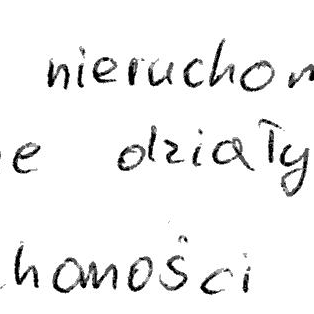 nieruchom
e działy
homości